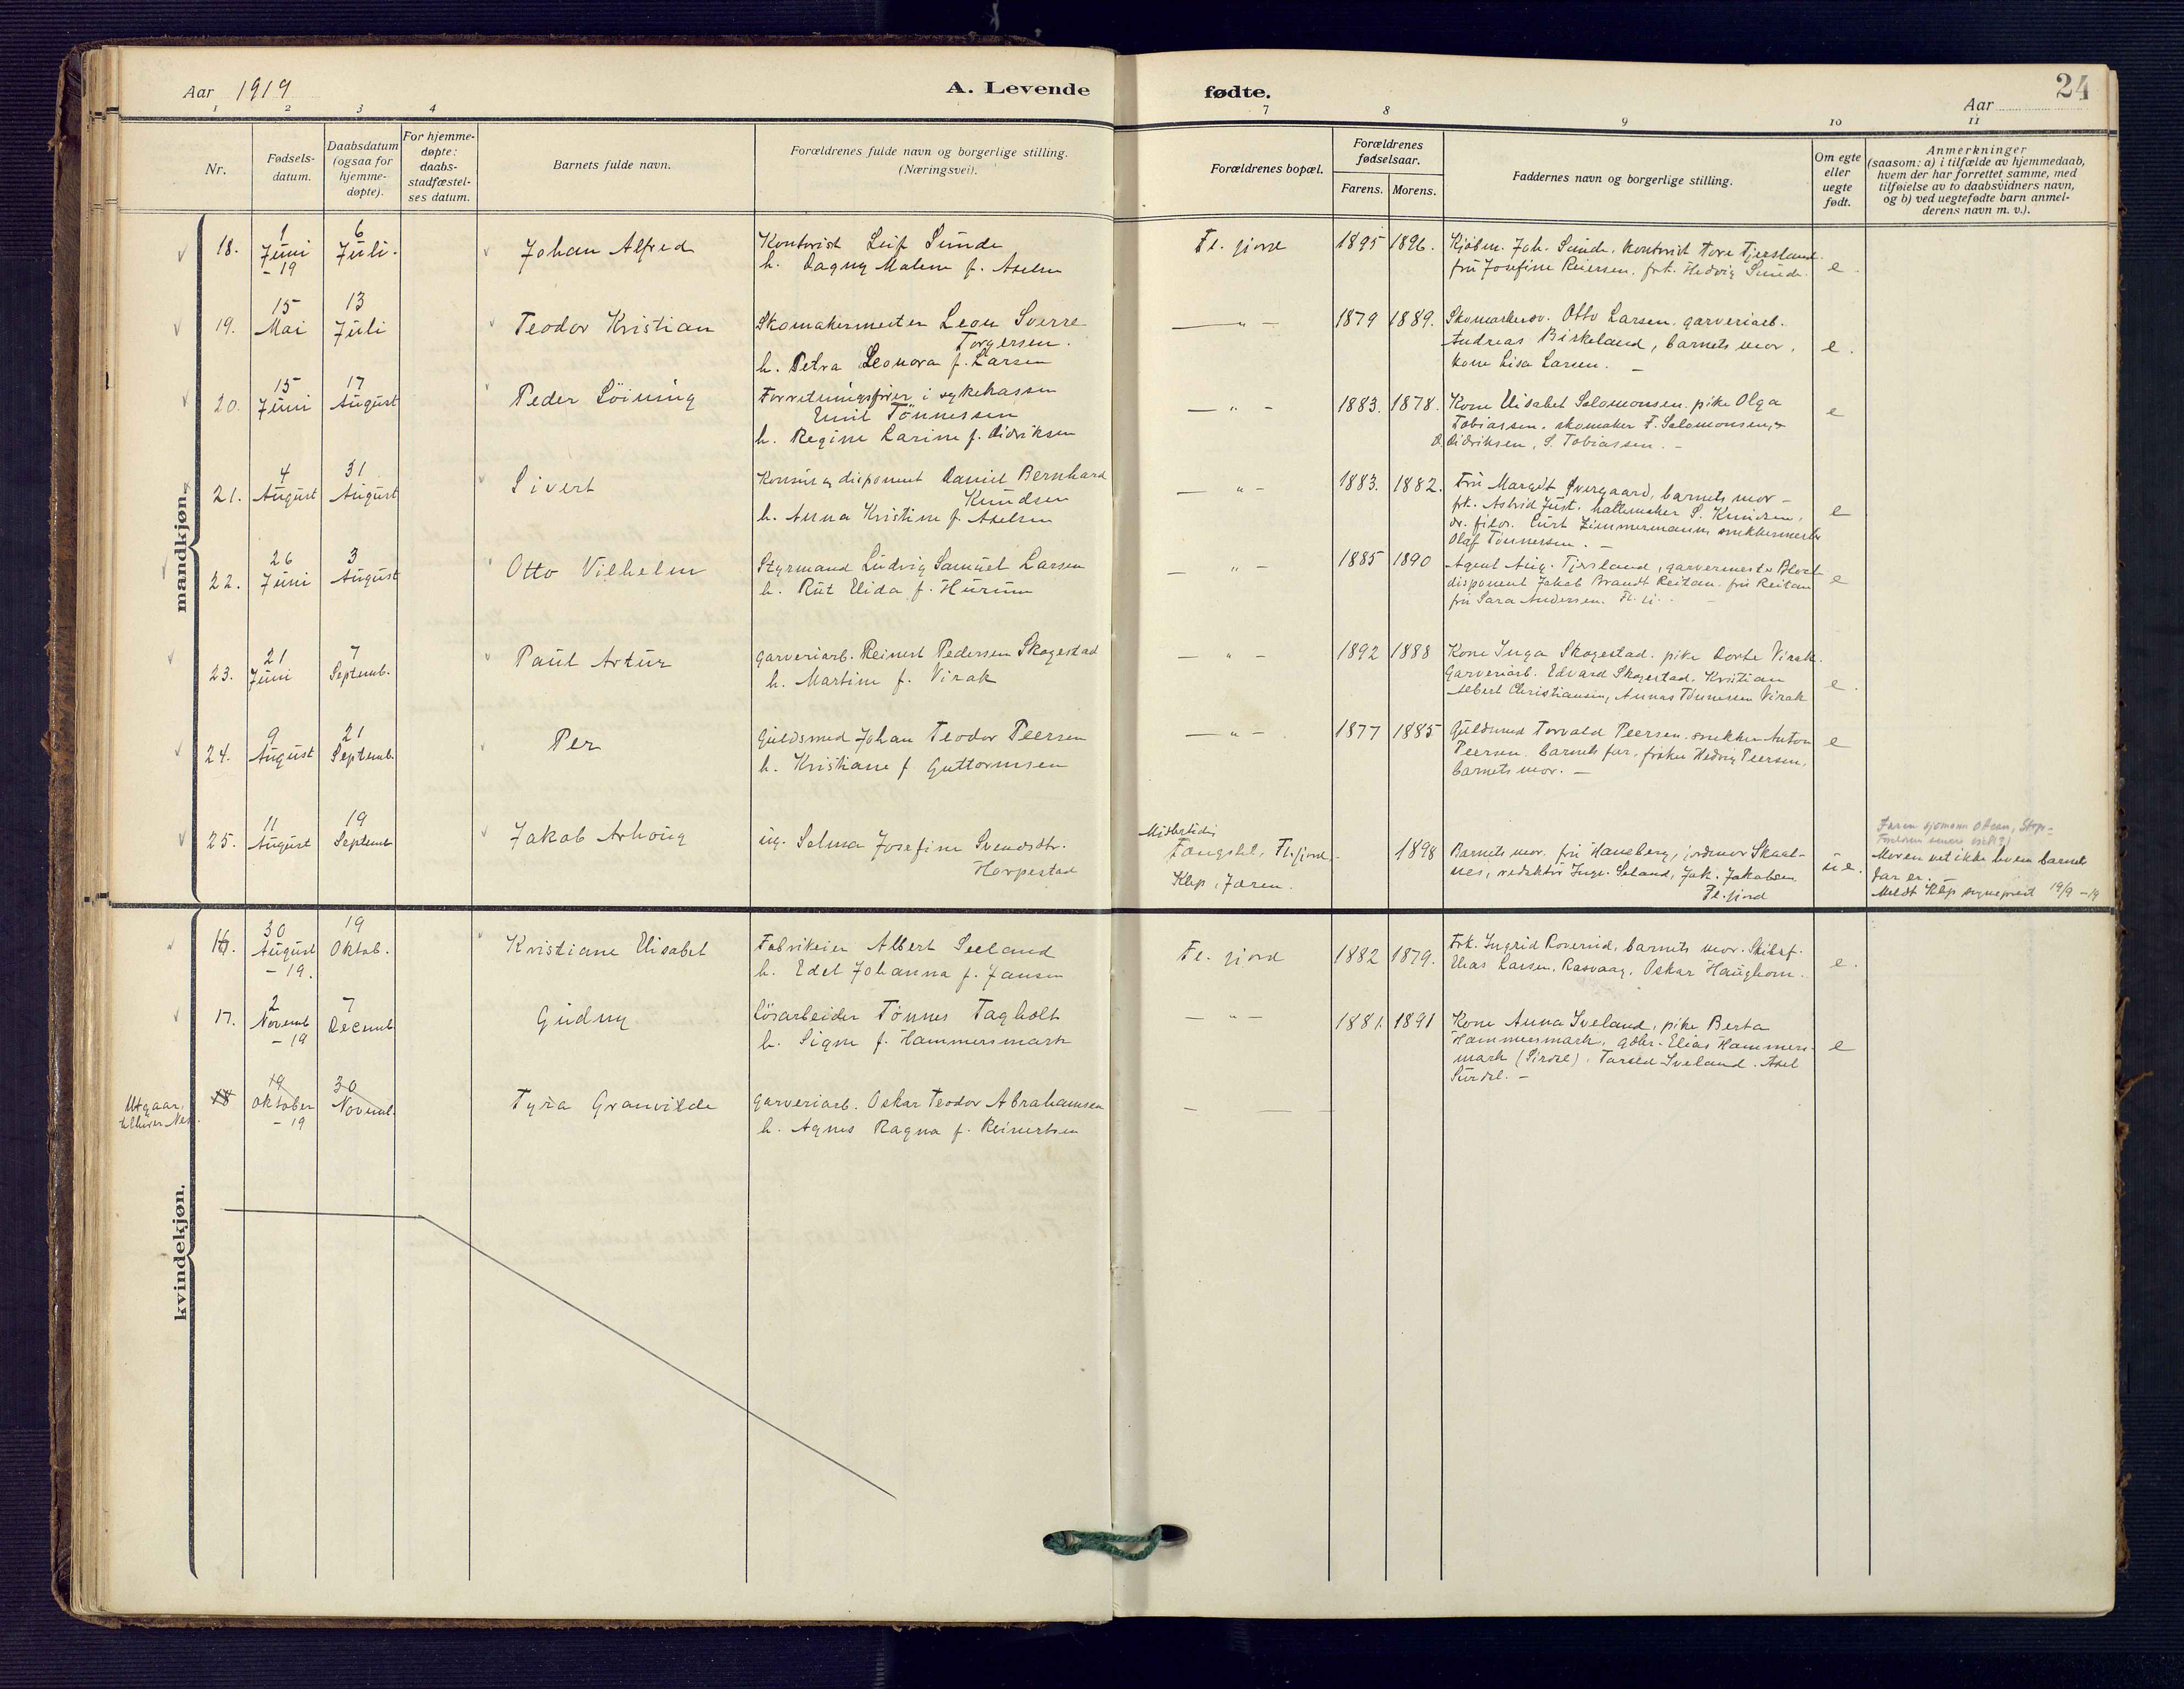 Aar 1919
A. Levende
fødte.
Aar
24
1 2 3 4 7 8 9 10 11
Nr.
Fødsels-
datum.
Daabsdatum
(ogsaa for
hjemme-
døpte).
For hjemme-
døpte:
daabs-
stadfæstel-
ses datum.
Barnets fulde navn.
Forældrenes fulde navn og borgerlige stilling.
(Næringsvei).
Forældrenes bopæl.
Forældrenes
fødselsaar.
Farens. Morens.
Faddernes navn og borgerlige stilling.
Om egte
eller
uegte
født.
Anmerkninger
(saasom: a) i tilfælde av hjemmedaab,
hvem der har forrettet samme, med
tilføielse av to daabsvidners navn,
og b) ved uegtefødte barn anmel-
derens navn m. v.).
mandkjøn.
18.
1
Juni
-19
6
Juli.
Johan Alfred
Kontorist Leif Sunde
h. Dagny Malene f. Axelsen
Fl. fjord
1895 1896.
Kjøbm. Joh. Sunde. Kontorist Tore Tjersland.
fru Josefine Reiersen. frk. Hedvig Sunde.
e.
19.
15
Mai
13
Juli
Teodor Kristian
Skomakermester Leon Sverre
Torgersen.
h. Petra Leonora f. Larsen
— „ —
1879 1889.
Otto Larsen. garveriarb.
Andreas Birkeland, barnets mor,
kone Lisa Larsen. —
e.
20.
15
Juni
17
August
Peder Löining
Forretningsfører i sykekassen
Emil Tönnessen
h. Regine Larine f. Didriksen
— „ —
1883. 1878.
Kone Elisabet Salomonsen. pike Olga
Tobiassen. skomaker T. Salomonsen,
D. Didriksen, S. Tobiassen. —
e
21.
4
August
31
August
Sivert
Konsul og disponent Daniel Bernhard
Knudsen
h. Anna Kristine f. Axelsen
— „ —
1883. 1882.
Fru Margit Overgaard, barnets mor —
frk. Astrid Just. hattemaker S. Knudsen,
dr. filos. Curt Zimmermann, snekkermester
Olaf Tönnessen. —
e
22.
26
Juni
3
August
Otto Vilhelm
Styrmand Ludvig Samuel Larsen
h. Rut Elida f. Hurum
— „ —
1885 1890
Agent Aug. Tjersland, garvermester
disponent Jakob Brandt Reitan. fru Reitan
fru Sara Andersen. Fl. fj. —
e
23.
21
Juni
7
Septemb.
Paul Artur
Garveriarb. Reinert Pedersen Skogestad
h. Martine f. Virak
— „ —
1892 1888
Kone Inga Skogestad. pike Dorte Virak.
Garveriarb. Edvard Skogestad. Kristian
Albert Christiansen, Annas Tönnessen Virak
e.
24.
9
August
21
Septemb.
Per
Guldsmed Johan Teodor Peersen
h. Kristiane f. Guttormsen
— „ —
1877 1885
Guldsmed Torvald Peersen. snekker Anton
Peersen. barnets far, frøken Hedvig Peersen,
barnets mor. —
e
25.
11
August
19
Septemb
Jakob Arhoug
ug. Selma Josefine Svendsdtr.
Horpestad
Midlertidig
Fængslet, Fl. fjord.
Klep, Jæren.
1898
Barnets mor. fru Haneberg, jordmor Skaal-
nes, redaktör Inge. Seland, Jak. Jakobsen
Fl. fjord
ue.
Faren sjømann Olsen,
Moren vet ikke hvem barnets
far er. —
Meldt Klep sogneprest 19/9 -19
kvindekjøn.
16.
30
August
-19.
19
Oktob.
Kristiane Elisabet
Fabrikeier Albert Seeland
h. Edel Johanna f. Jansen
Fl. fjord
1882 1879.
Frk. Ingrid Roverud, barnets mor. Skibsf.
Elias Larsen, Rasvaag. Oskar Haughom.
e.
17.
2
Novemb
-19
7
Decemb
Gudny
Lösarbeider Tönnes Tagholt
h. Signe f. Hammersmark
— „ —
1881. 1891
Kone Anna Sveland, pike Berta
Hammersmark. gdbr. Elias Hammers-
mark (Sirdal). Tarald Sveland. Axel
Surdal. —
e
Utgaar.
tilhører Nes.
18
19
Oktober
-19
30
Novemb.
Tyra Granvilde
Garveriarb. Oskar Teodor Abrahamsen
h. Agnes Ragna f. Reinertsen
— — —